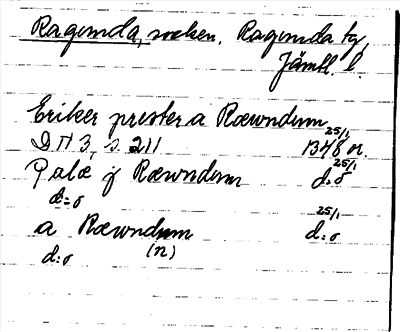 Ragunda, socken. Ragunda tg,
Jämtl. l.
Erikær prester a Ræwndum
DN 3, s. 211 25/1 1348 or.
Palæ j Ræwndum 25/1 d:o
d:o
a Ræwndum 25/1 d:o
d:o (n)